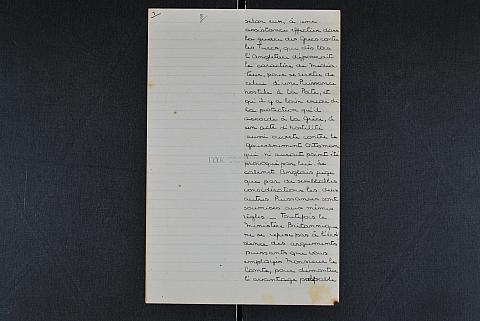 selon eux, à une
assistance effective dans
la guerre des Grecs contre
les Turcs, que dès lors
l'Angleterre déposerait
le caractère de Média-
teur, pour se revêtir de
celui d'une Puissance
hostile à la Porte, et
qu'il y a loin encore de
la protection qu'elle
accorde à la Grèce, à
un acte d'hostilité
aussi ouverte contre le
Gouvernement Ottoman
qui n'aurait point été
provoqué par lui. Le
cabinet Anglais juge
que par de semblables
considérations les deux
autres Puissances sont
soumises aux mêmes
règles. — Toutefois le
Ministère Britannique
ne se refuse pas à l'évi-
dence des arguments
puissants que vous
employez Monsieur le
Comte, pour démontrer
l'avantage palpable